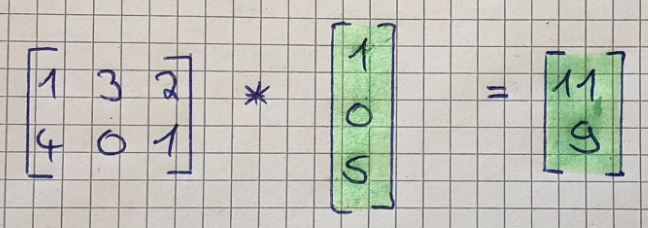 [1 3 2
4 0 1] * [1
0
5] = [11
9]